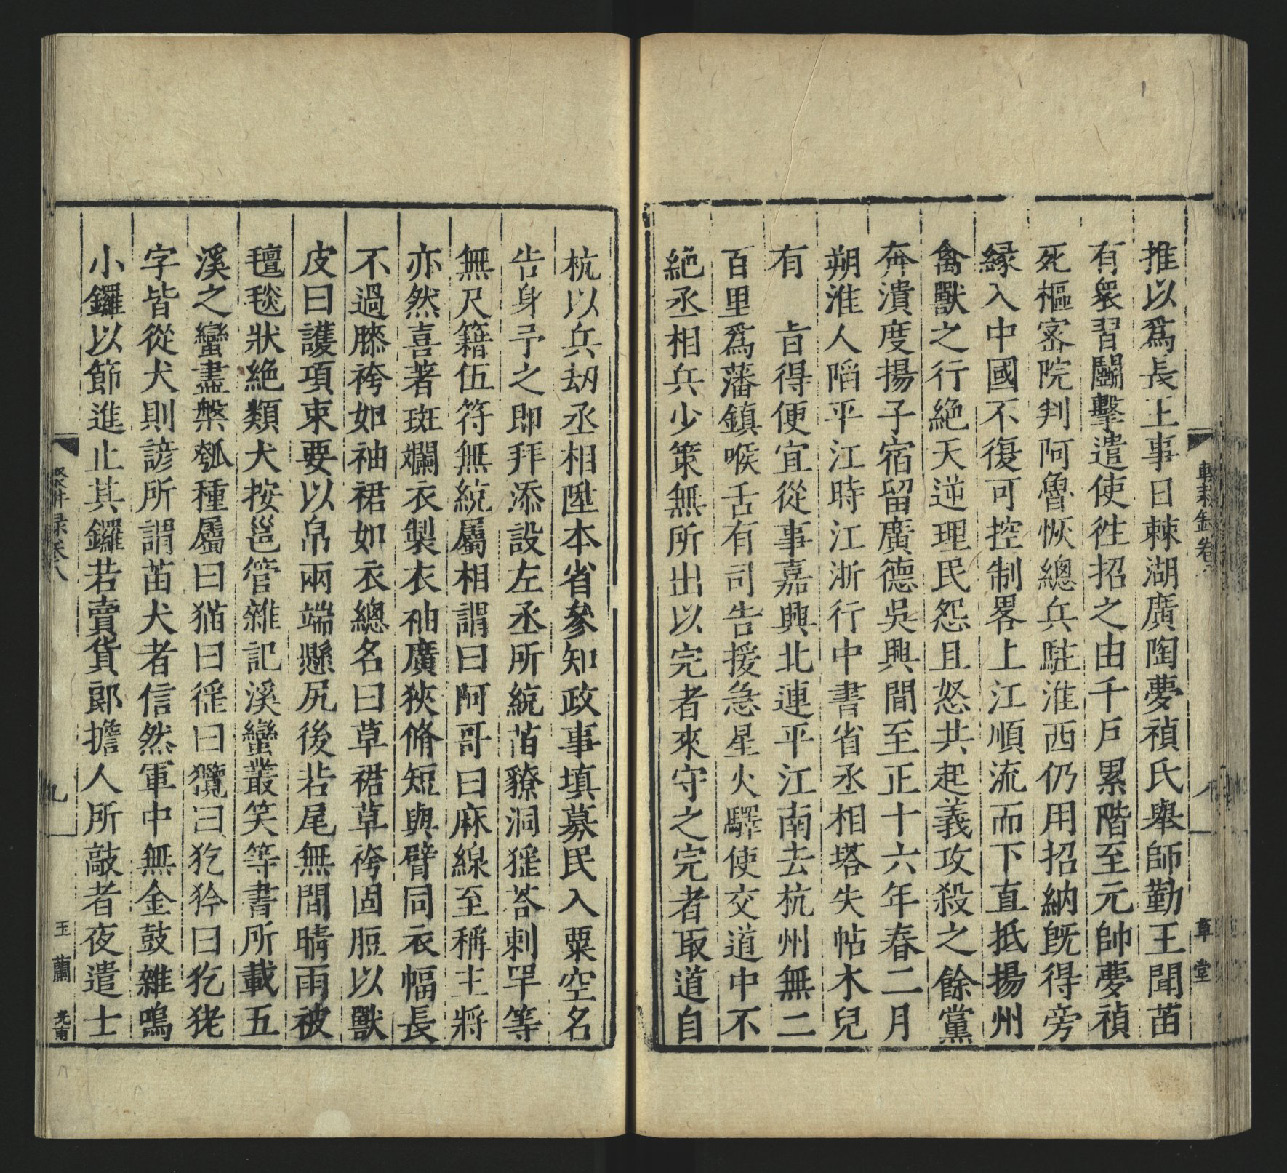 推以爲長王事日棘湖廣陶夢禎氏舉師勤王聞苗
有衆習鬭擊遣使徃招之由千戸累階至元帥夢禎
死樞宻院判阿魯恢總兵駐淮西仍用招納旣得旁
緣入中國不復可控制畧上江順流而下直抵揚州
禽獸之行絶天逆理民怨且怒共起義攻殺之餘黨
奔潰度揚子宿留廣德吳興間至正十六年春二月
朔淮人䧟平江時江浙行中書省丞相塔失帖木兒
有　㫖得便宜從事嘉興北連平江南去杭州無二
百里爲藩鎮喉舌有司告援急星火驛使交道中不
絶丞相兵少策無所出以完者來守之完者取道自
杭以兵刼丞相陞本省參知政事塡募民入粟空名
告身予之即拜添設左丞所統苗獠洞猺荅剌罕等
無尺籍伍符無統屬相謂曰阿哥曰麻線至稱主將
亦然喜著斑斕衣製衣袖廣狹脩短與臂同衣幅長
不過膝袴如袖裙如衣總名曰草裙草袴固脰以獸
皮曰護項束要以帛兩端懸尻後若尾無間晴雨被
氊毯狀絶類犬按邕管雜記溪蠻叢笑等書所載五
溪之蠻盡槃瓠種屬曰猫曰猺曰獠曰犵狑曰犵狫
字皆從犬則諺所謂苗犬者信然軍中無金鼓雜鳴
小鑼以節進止其鑼若賣貨郎擔人所敲者夜遣士
輟耕録卷八
九
王蘭